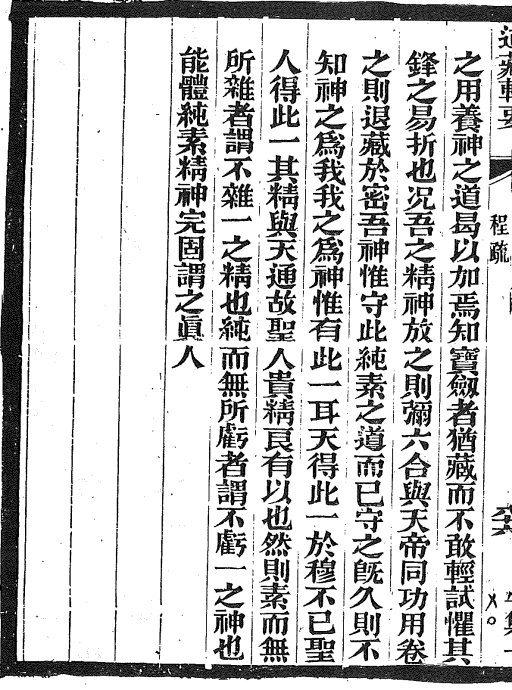 道藏輯要
程疏
之用養神之道曷以加焉知寶劔者猶藏而不敢輕試懼其
鋒之易折也况吾之精神放之則彌六合與天帝同功用卷
之則退藏於密吾神惟守此純素之道而已守之旣久則不
知神之爲我我之爲神惟有此一耳天得此一於穆不已聖
人得此一其精與天通故聖人貴精良有以也然則素而無
所雜者謂不雜一之精也純而無所虧者謂不虧一之神也
能體純素精神完固謂之眞人